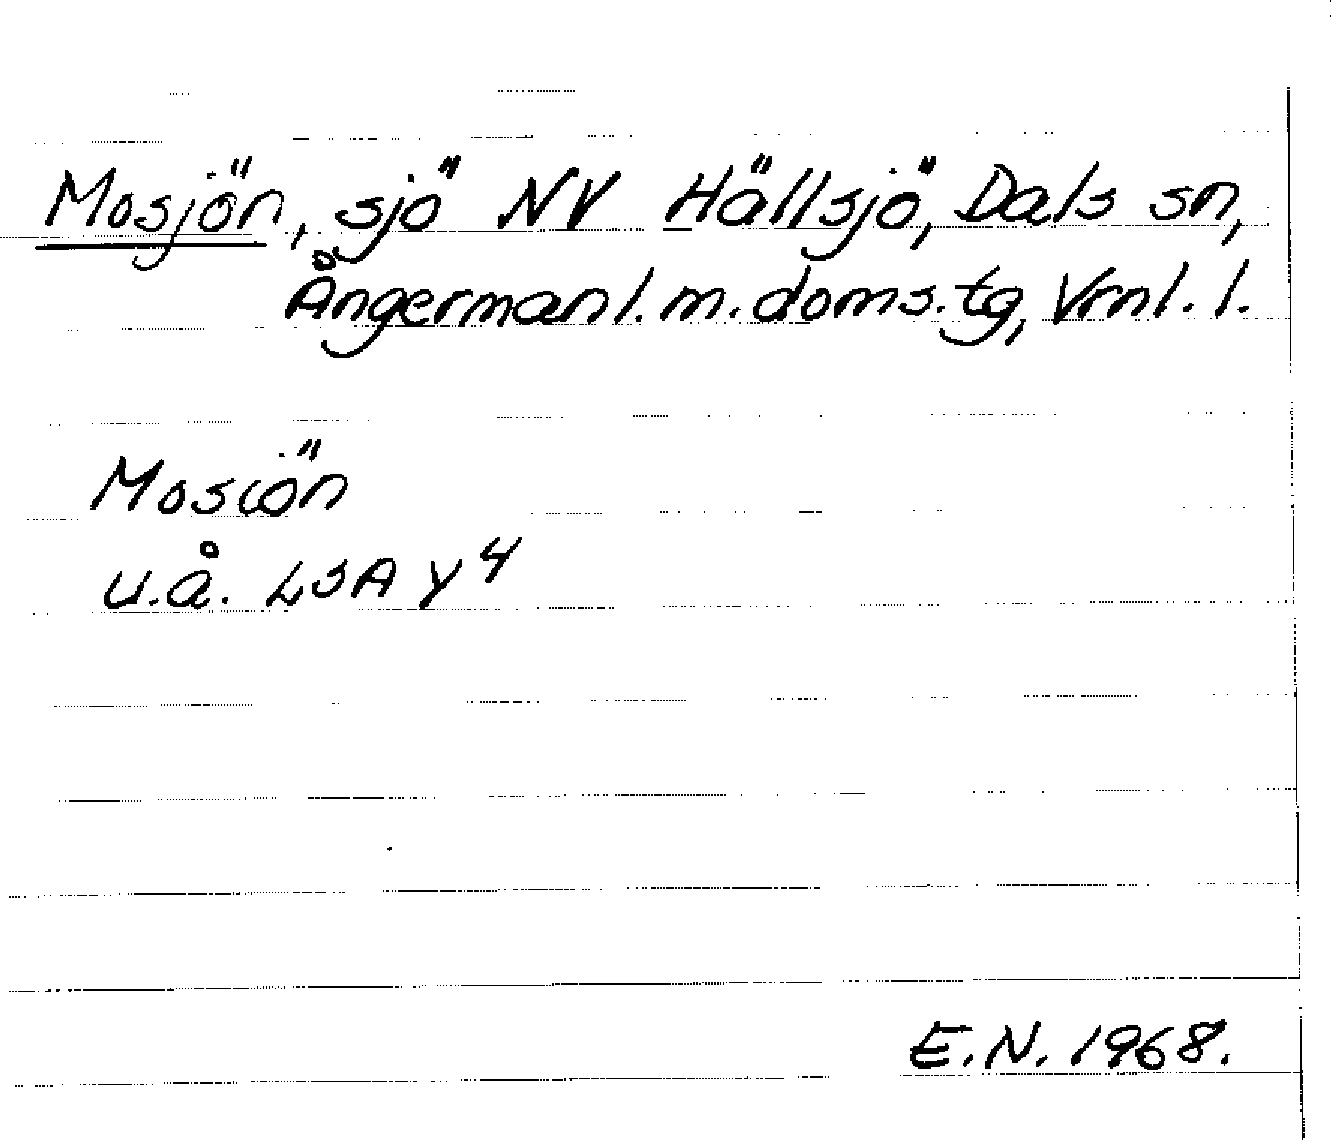 Mosjön, sjö NV Hällsjö, Dals sn,
Ångermanl. m. doms. tg, Vrnl. l.
Mosiön
u.å. LSA Y 4
E.N. 1968.